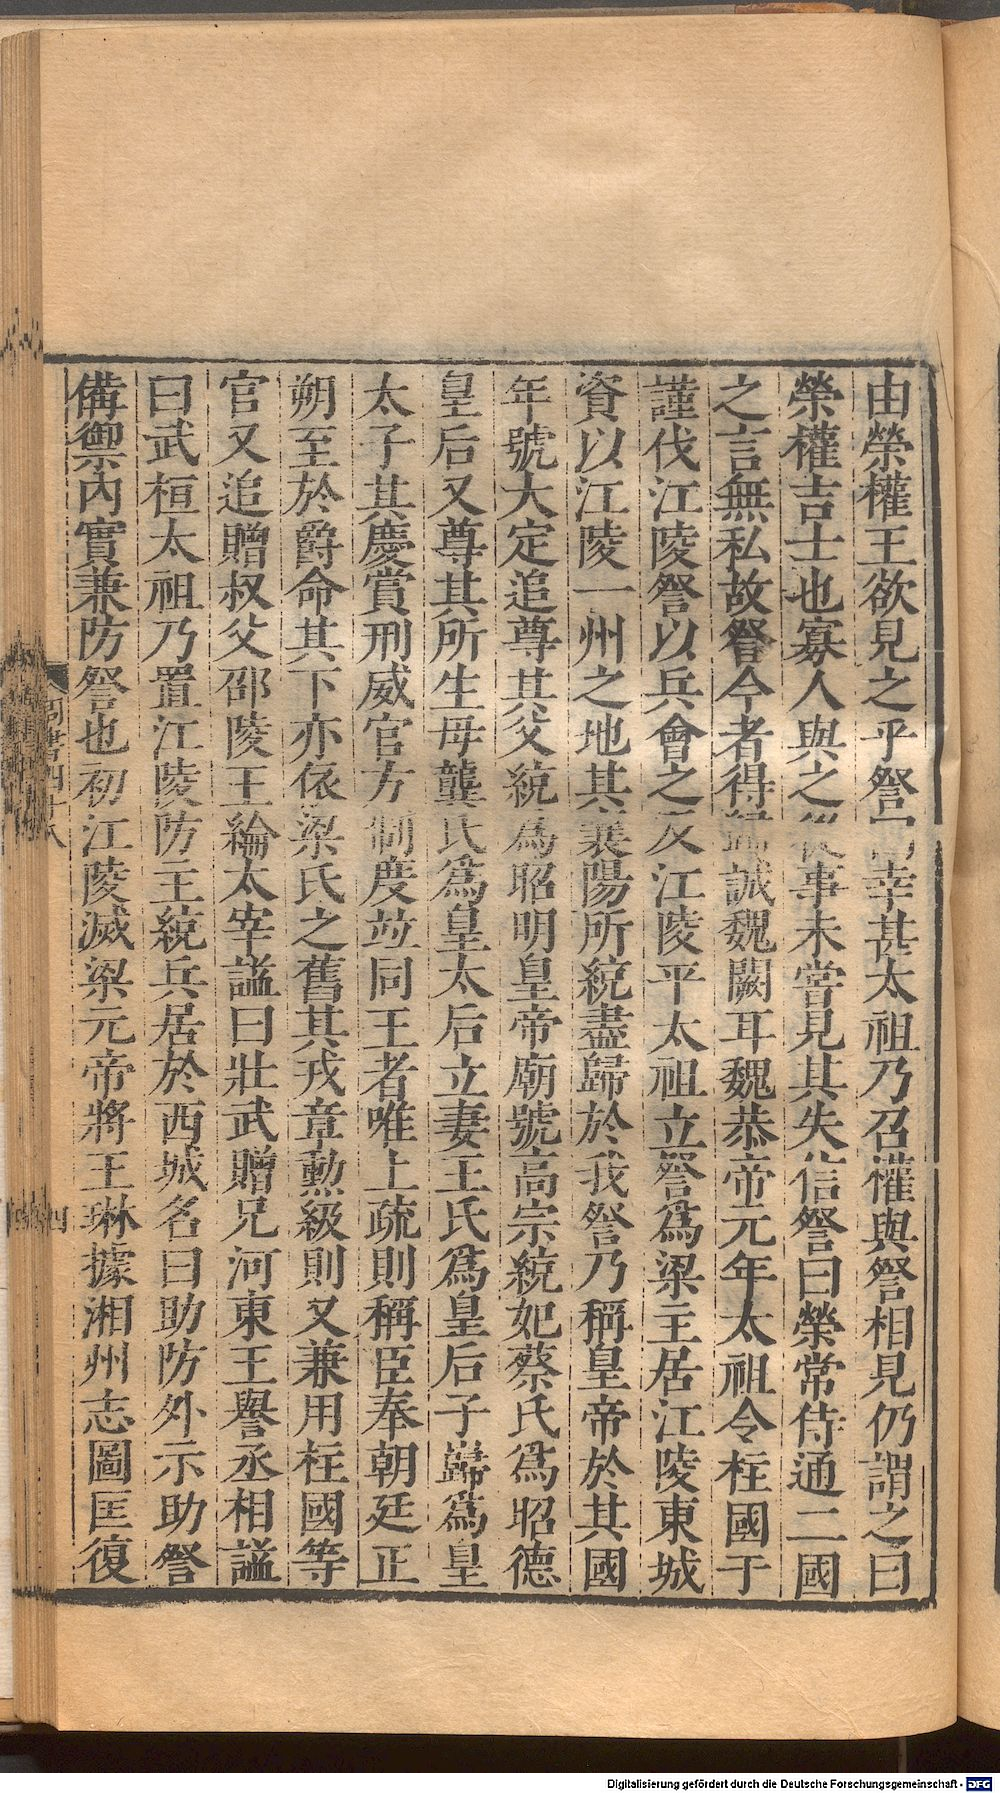 由榮權王欲見之乎詧曰幸甚太祖乃召權與詧相見仍謂之曰
榮權吉士也寡人與之從事未嘗見其失信詧曰榮常侍通二國
之言無私故詧今者得歸誠魏闕耳魏恭帝元年太祖令柱國于
謹伐江陵詧以兵會之及江陵平太祖立詧爲梁主居江陵東城
資以江陵一州之地其襄陽所統盡歸於我詧乃稱皇帝於其國
年號大定追尊其父統爲昭明皇帝廟號高宗統妃蔡氏爲昭德
皇后又尊其所生母龔氏爲皇太后立妻王氏爲皇后子巋爲皇
太子其慶賞刑威官方制度竝同王者唯上疏則稱臣奉朝廷正
朔至於爵命其下亦依梁氏之舊其戎章勲級則又兼用柱國等
官又追贈叔父邵陵王綸太宰諡曰壯武贈兄河東王譽丞相諡
曰武桓太祖乃置江陵防主統兵居於西城名曰助防外示助詧
備禦內實兼防詧也初江陵滅梁元帝將王琳據湘州志圖匡復
周書四十八
四
Digitalisierung gefördert durch die Deutsche Forschungsgemeinschaft - DFG